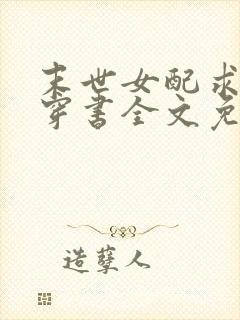 末世女配求
穿书全文免
造孽人